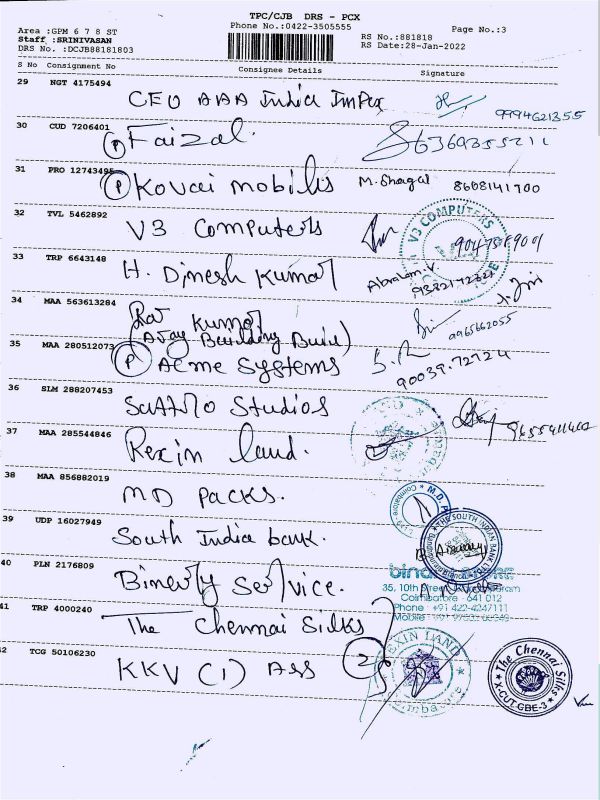 TPC/CJB DRS - PCX
Area :GPM 6 7 8 ST
Phone No.:0422-3505555
Page No.:3
Staff :SRINIVASAN
RS No.:881818
DRS No. :DCJB88181803
RS Date:28-Jan-2022
S No Consignment No
Consignee Details
Signature
29 NGT 4175494
CEO AAA India Impex
9994621355
30 CUD 7206401
P Faizal.
31 PRO 12743495
P Kovai mobiles
8608141700
32 TVL 5462892
V3 Computers
V3 COMPUTERS
33 TRP 6643148
H. Dinesh Kumar
34 MAA 563613284
Raj Kumar
9965662055
35 MAA 280512073
P Acme Systems
90039.72724
36 SLM 288207453
Studios
37 MAA 285544846
Rexin land.
38 MAA 856882019
MD Packs.
39 UDP 16027949
South India bank.
THE SOUTH INDIAN BANK LTD
40 PLN 2176809
Service.
35, 10th Street
Coimbatore - 641 012
Phone : +91 422-4247111
41 TRP 4000240
The Chennai Silks
REXIN LAND
Coimbatore
The Chennai Silks
CUT-CBE-3
42 TCG 50106230
KKV (1) Ass
2